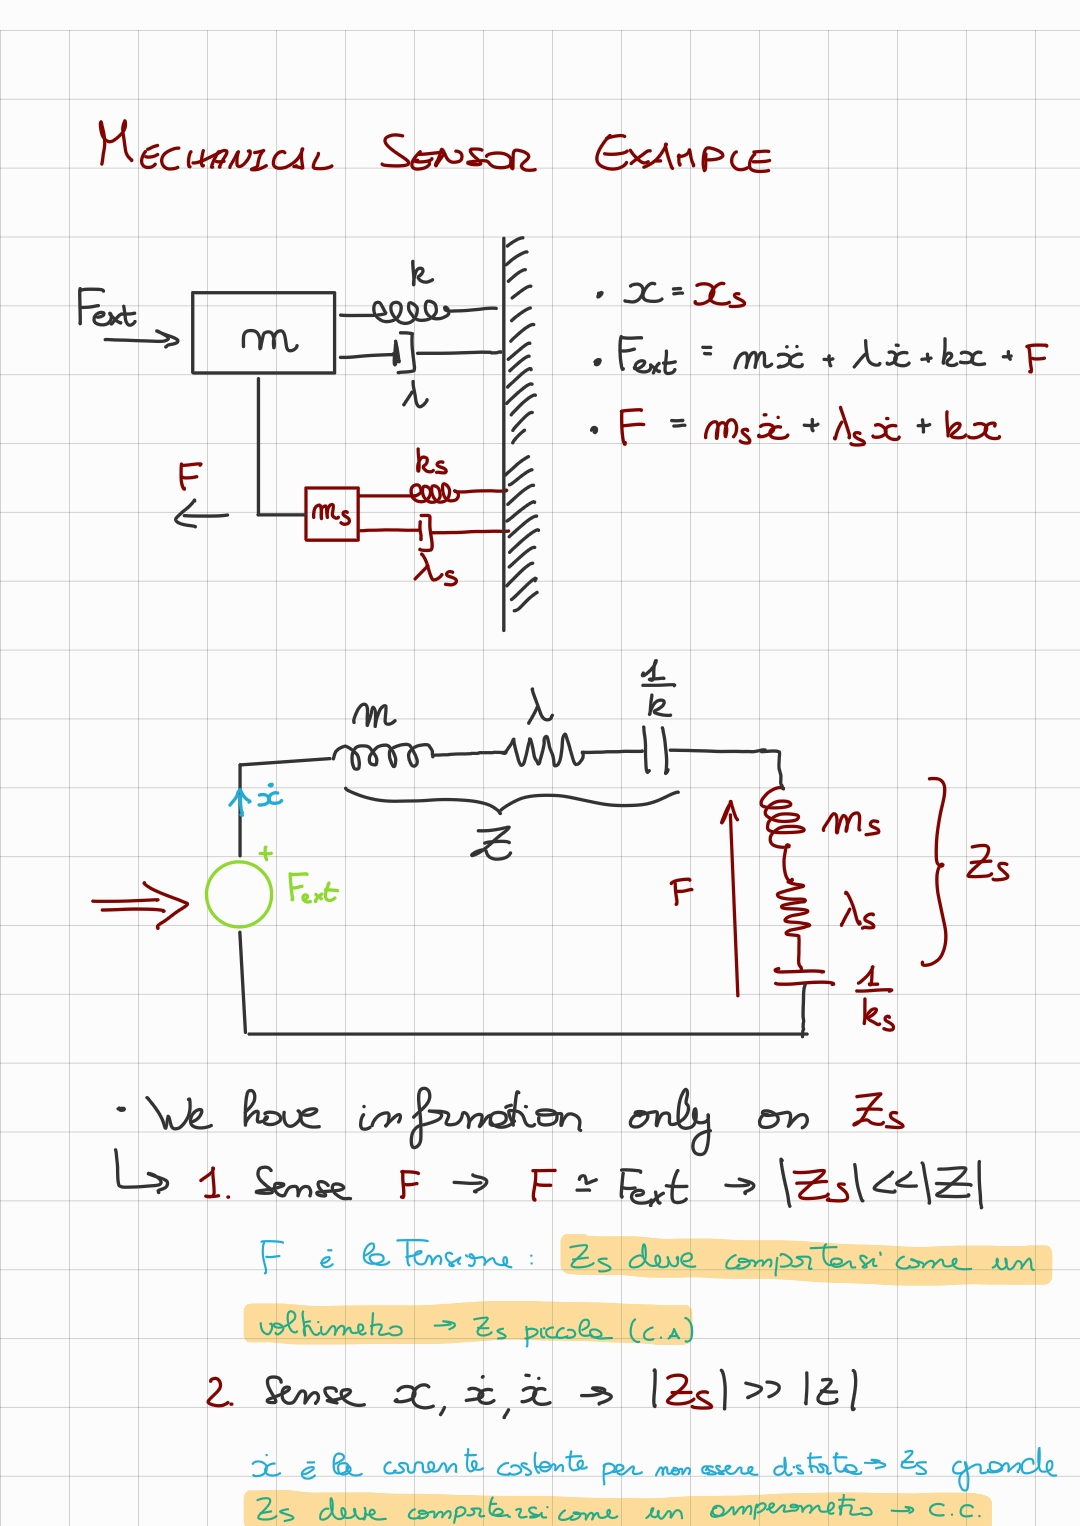 MECHANICAL SENSOR EXAMPLE
k
Fext
m
λ
· x = xs
· Fext = mẍ + λẋ + kx + F
· F = msẍ + λsẋ + kx
F
ks
ms
λs
m
λ
1/k
ẋ
Z
+
Fext
F
ms
λs
1/ks
Zs
· We have information only on Zs
↳ 1. Sense F → F ≃ Fext → |Zs| << |Z|
F è la Tensione : Zs deve comportarsi come un
voltimetro → Zs piccola (C.A)
2. Sense x, ẋ, ẍ → |Zs| >> |Z|
ẋ è la corrente costante per non essere distorta → Zs grande
Zs deve comportarsi come un amperometro → C.C.